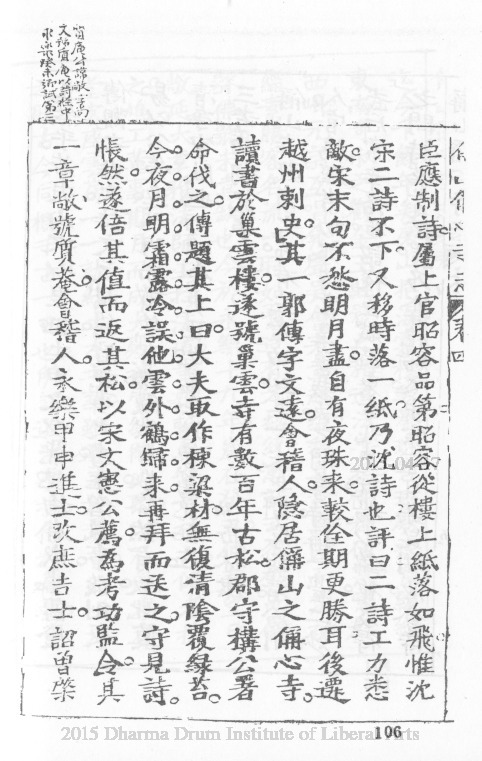 臣應制詩屬上官昭容品第昭容從樓上紙落如飛惟沈
宋二詩不下又移時落一紙乃沈詩也評曰二詩工力悉
敵宋末句不愁明月盡自有夜珠来較佺期更勝耳後遷
越州刺史其一郭傳字文遠會稽人隱居僻山之偁心寺
讀書於巢雲樓遂號巢雲寺有數百年古松郡守構公署
命伐之傳題其上曰大夫取作棟梁材無復清陰覆緑苔
今夜月明霜露冷誤他雲外鶴歸来再拜而送之守見詩
悵然遂倍其值而返其松以宋文憲公薦為考功監令其
一章敞號質菴會稽人永樂甲申進士改庶吉士詔曽棨
卷四
106
2015 Dharma Drum Institute of Liberal Arts